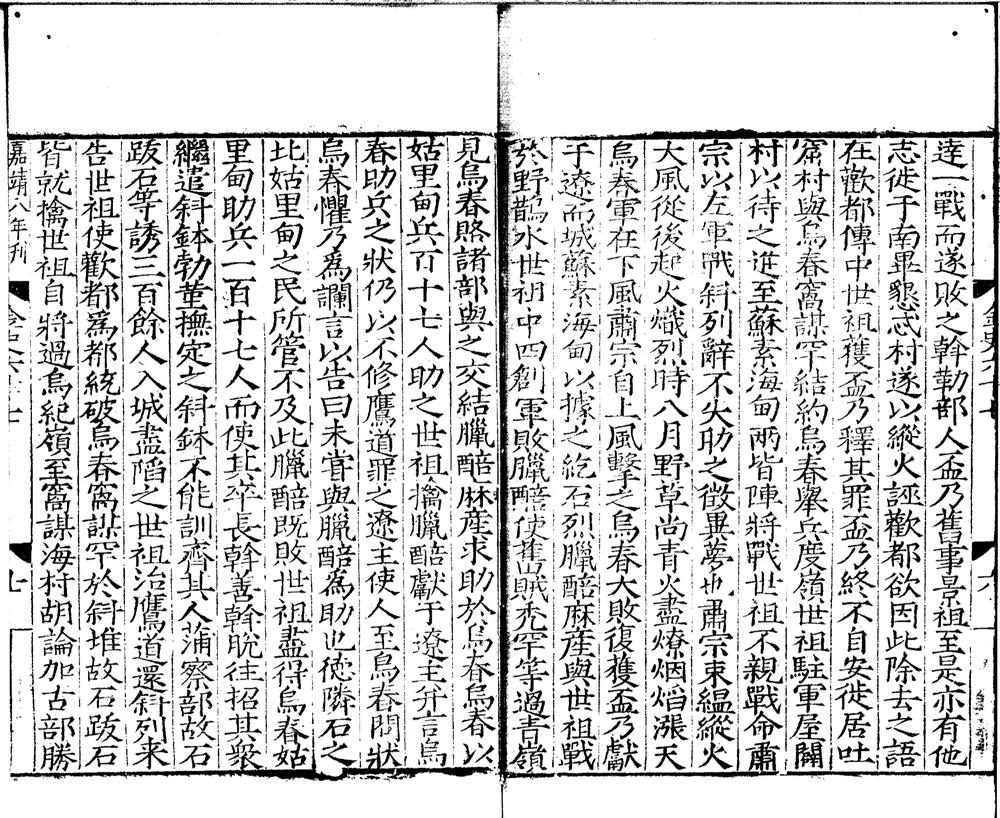 達一戰而遂敗之斡勒部人盃乃舊事景祖至是亦有他
志徙于南畢懇忒村遂以縱火誣歡都欲因此除去之語
在歡都傳中世祖獲盃乃釋其罪盃乃終不自安徙居吐
窟村與烏春窩謀罕結約烏春舉兵度嶺世祖駐軍屋闢
村以待之進至蘇素海甸兩皆陣將戰世祖不親戰命肅
宗以左軍戰斜列辭不失助之徵異夢也肅宗束緼縱火
大風從後起火熾烈時八月野草尚青火盡燎烟焰漲天
烏春軍在下風肅宗自上風擊之烏春大敗復獲盃乃獻
于遼而城蘇素海甸以據之紇石烈臘醅麻産與世祖戰
於野鵲水世祖中四創軍敗臘醅使舊賊禿罕等過青嶺
見烏春賂諸部與之交結臘醅麻産求助於烏春烏春以
姑里甸兵百十七人助之世祖擒臘醅獻于遼主并言烏
春助兵之狀仍以不修鷹道罪之遼主使人至烏春問狀
烏春懼乃爲讕言以告曰未甞與臘醅爲助也德隣石之
北姑里甸之民所管不及此臘醅既敗世祖盡得烏春姑
里甸助兵一百十七人而使其卒長斡善斡脫往招其衆
繼遣斜鉢勃菫撫定之斜鉢不能訓齊其人蒲察部故石
跋石等誘三百餘人入城盡陷之世祖治鷹道還斜列来
告世祖使歡都爲都統破烏春窩謀罕於斜堆故石跋石
皆就擒世祖自將過烏紀嶺至窩謀海村胡論加古部勝
嘉靖八年刊
七